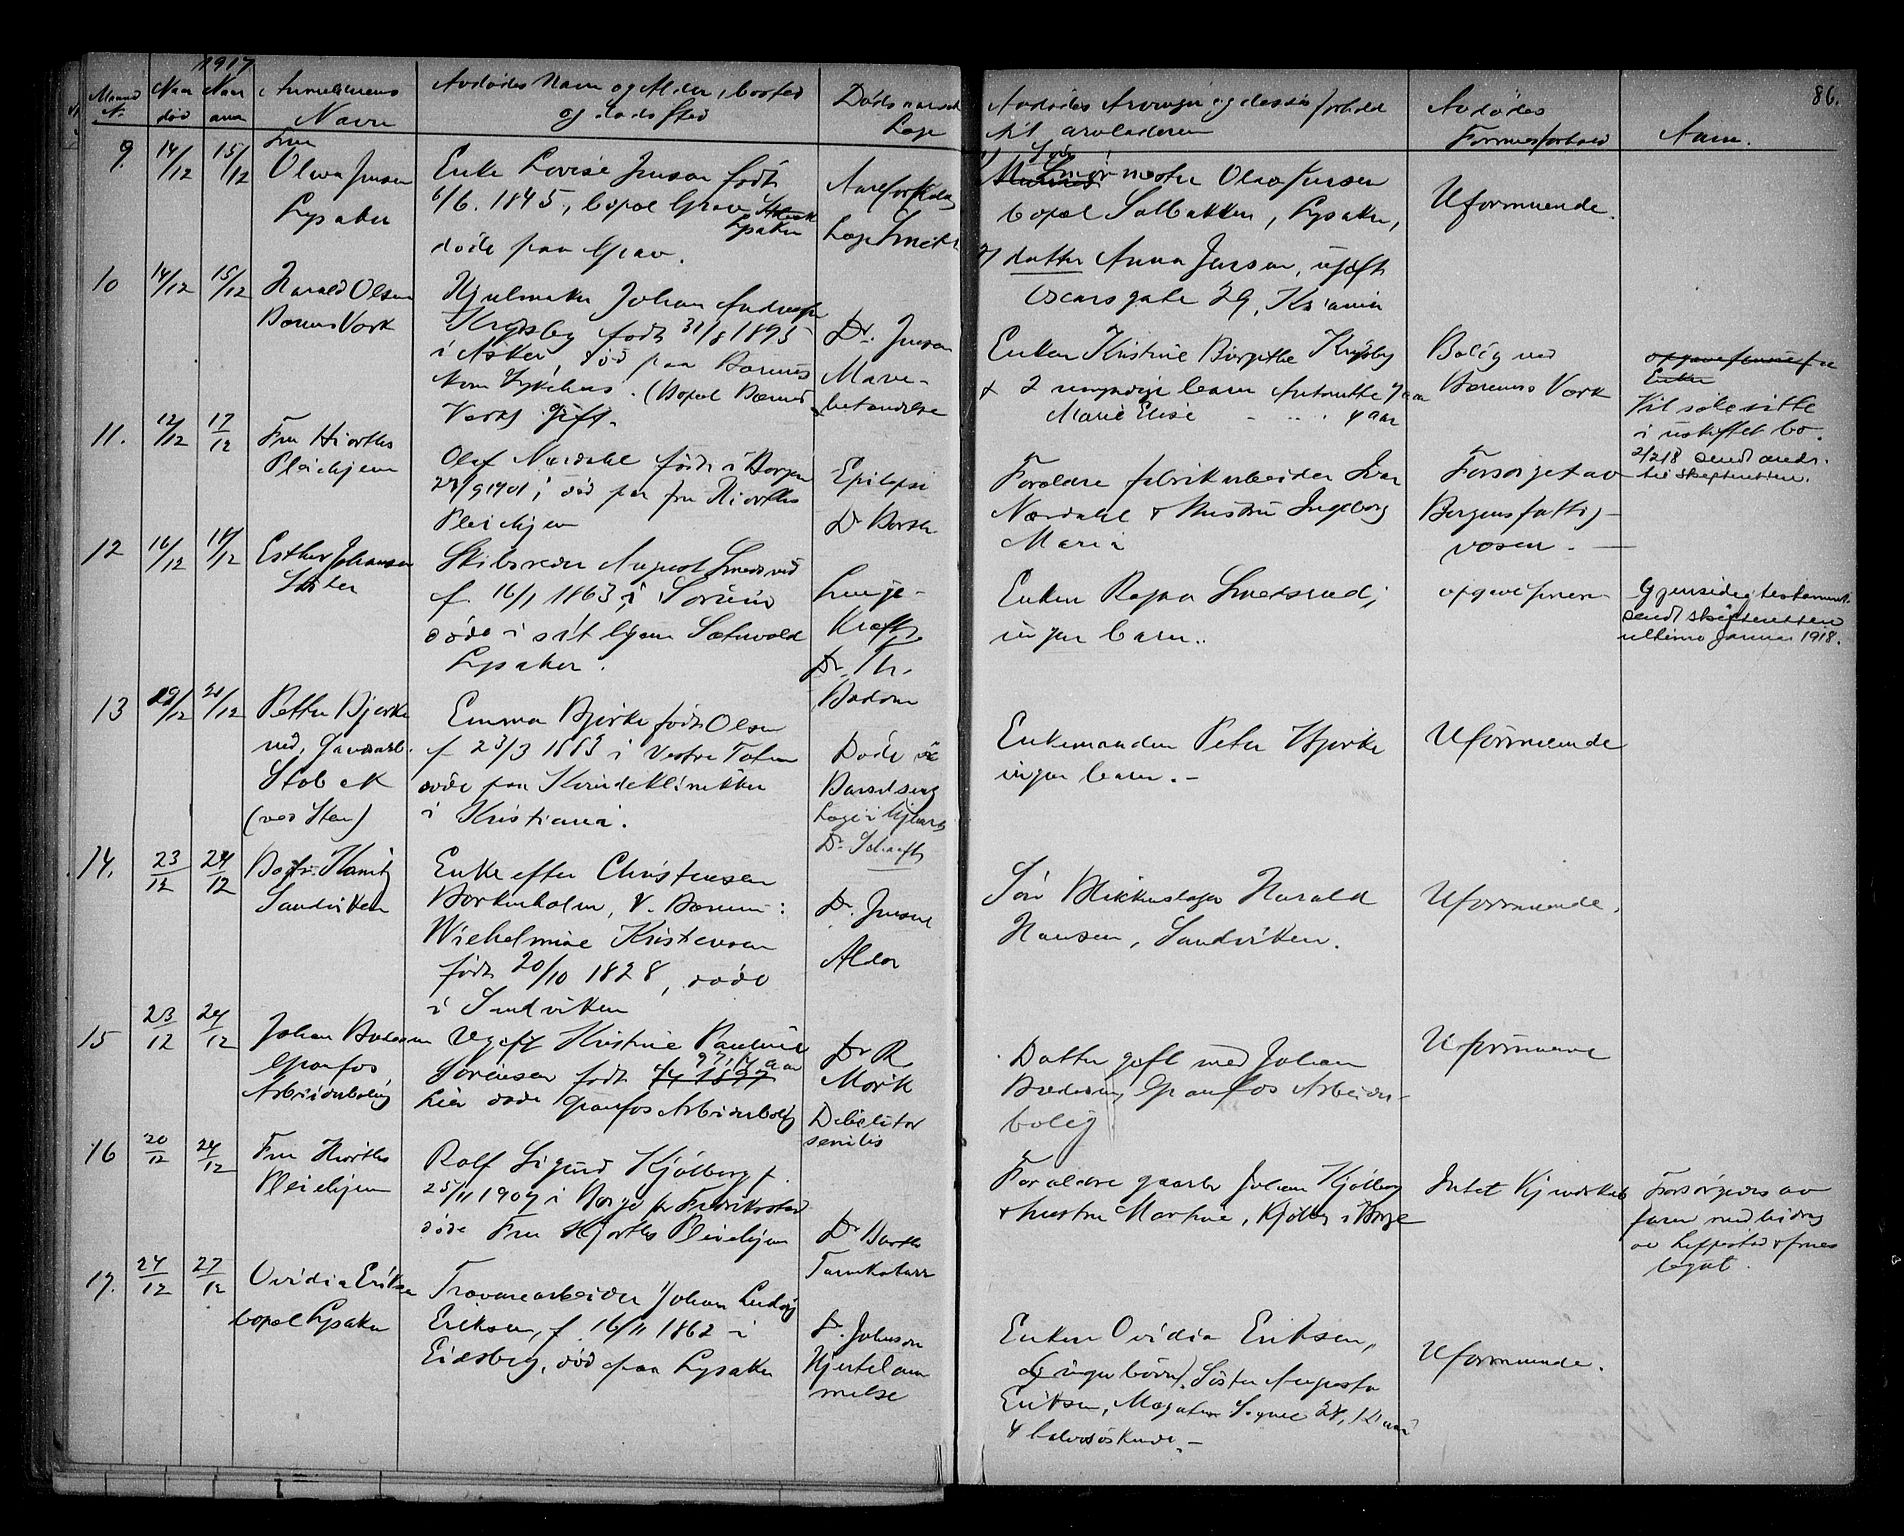 1917
86.
Maaned N.
Naar død
Naar anm
Anmelderens Navn
Avdødes Navn og Alder, bosted
og dødssted
Dødsaarsak
Læge
Avdødes Arvinger og desses forhold
til arveladeren
Avdødes
Formuesforhold
Anm.
9.
14/12
15/12
Fru
Olava Jensen
Lysaker
Enke Lovise Jensen født
6/6. 1845, bopæl Grav
Lysaker
døde paa Grav.
Aareforkalkn
Læge Smith
1)
Søn
mester Olav Jensen
bopæl Solbakken, Lysaker,
2) datter Anna Jensen, ugift
Oscarsgate 29, Kr.ania
Uformuende.
10
14/12
15/12
Harald Olsen
Bærums Værk
Hjulmaker Johan Andreas
Krydsby født 31/8 1875
i Asker død paa Bærums
Sykehus. (Bopæl Bærums
Værk) gift.
Dr. Jensen
Mave-
betændelse
Enken Kristine Birgithe Krydsby
& 2 umyndige barn Antonette 7 aar
Marie Elise - .. .. 4 aar
Bolig ved
Bærums Værk
Enke
Vil søke sitte
i uskiftet bo.
2/2 18 sendt anm.
til skifteretten.
11.
12/12
17/12
Fru Hiorths
Pleiehjem
Olaf Nærdahl født i Bergen
2?/9 1901; død paa fru Hiorths
Pleiehjem
Epilepsi
Dr Barth
Forældre fabrikarbeider Ivar
Nærdahl & Hustru Ingeborg
Maria
Forsørget av
Bergens fattig-
væsen. —
12
16/12
17/12
Esther Johansen
Skibsreder August Smedsrud
f. 16/1 1863 i Sørum
døde i sit hjem Sæthvold
Lysaker.
Lunge-
Kræft
Dr. Th.
Enken Ragna Smedsrud;
ingen barn.
opgave senere
Gjensidig testament
sendt skifteretten
ultimo Januar 1918.
13
19/12
21/12
Petter Bjerke
Stabæk
(ved Sten)
Emma Bjerke født Olsen
f 23/3 1883 i Vestre Toten
døde paa Kvindeklinikken
i Kristiania.
Døde i
Barselseng
Enkemanden Peter Bjerke
ingen barn. -
Uformuende
14.
23/12
24/12
Sandviken
Enke efter Christensen
Borkenholm, V. Bærum:
Wilhelmine Kristensen
født 20/10 1828, døde
i Sandviken
Dr. Jensen
Alder
Søn Blikkenslager Harald
Hansen, Sandviken.
Uformuende.
15
23/12
24/12
Johan Andersen
Granfos
Arbeiderbolig
Ugift Kristine Pauline
Sørensen født
døde Granfos Arbeiderbolig
Dr R.
Mork
Debilitas
senilis
Datter gift med Johan
Andersen, Granfos Arbeider-
bolig
Uformuende
16
20/12
24/12
Fru Hiorths
Pleiehjem
Rolf Sigurd Kjølberg f.
25/11 1907 i Borge pr Fredrikstad
døde Fru Hjorths Pleiehjem
Dr Barth
Tarmkatarr
Forældre gaarbr Johan Kjølberg
& hustru Martine, Kjølberg i Borge
Intet Kjendskab
Forsørgedes av
faren med bidrag
av Leffestad & frues
legat.
17.
24/12
27/12
Ovidia Eriksen
bopæl Lysaker
Trævarearbeider Johan Ludvig
Eriksen, f. 16/11 1862 i
Eidsberg, død paa Lysaker
Dr. Johnson
Hjertelam
melse
Enken Ovidia Eriksen,
(ingen børn). Søster Augusta
Eriksen,
4 halvsøskende. -
Uformuende.